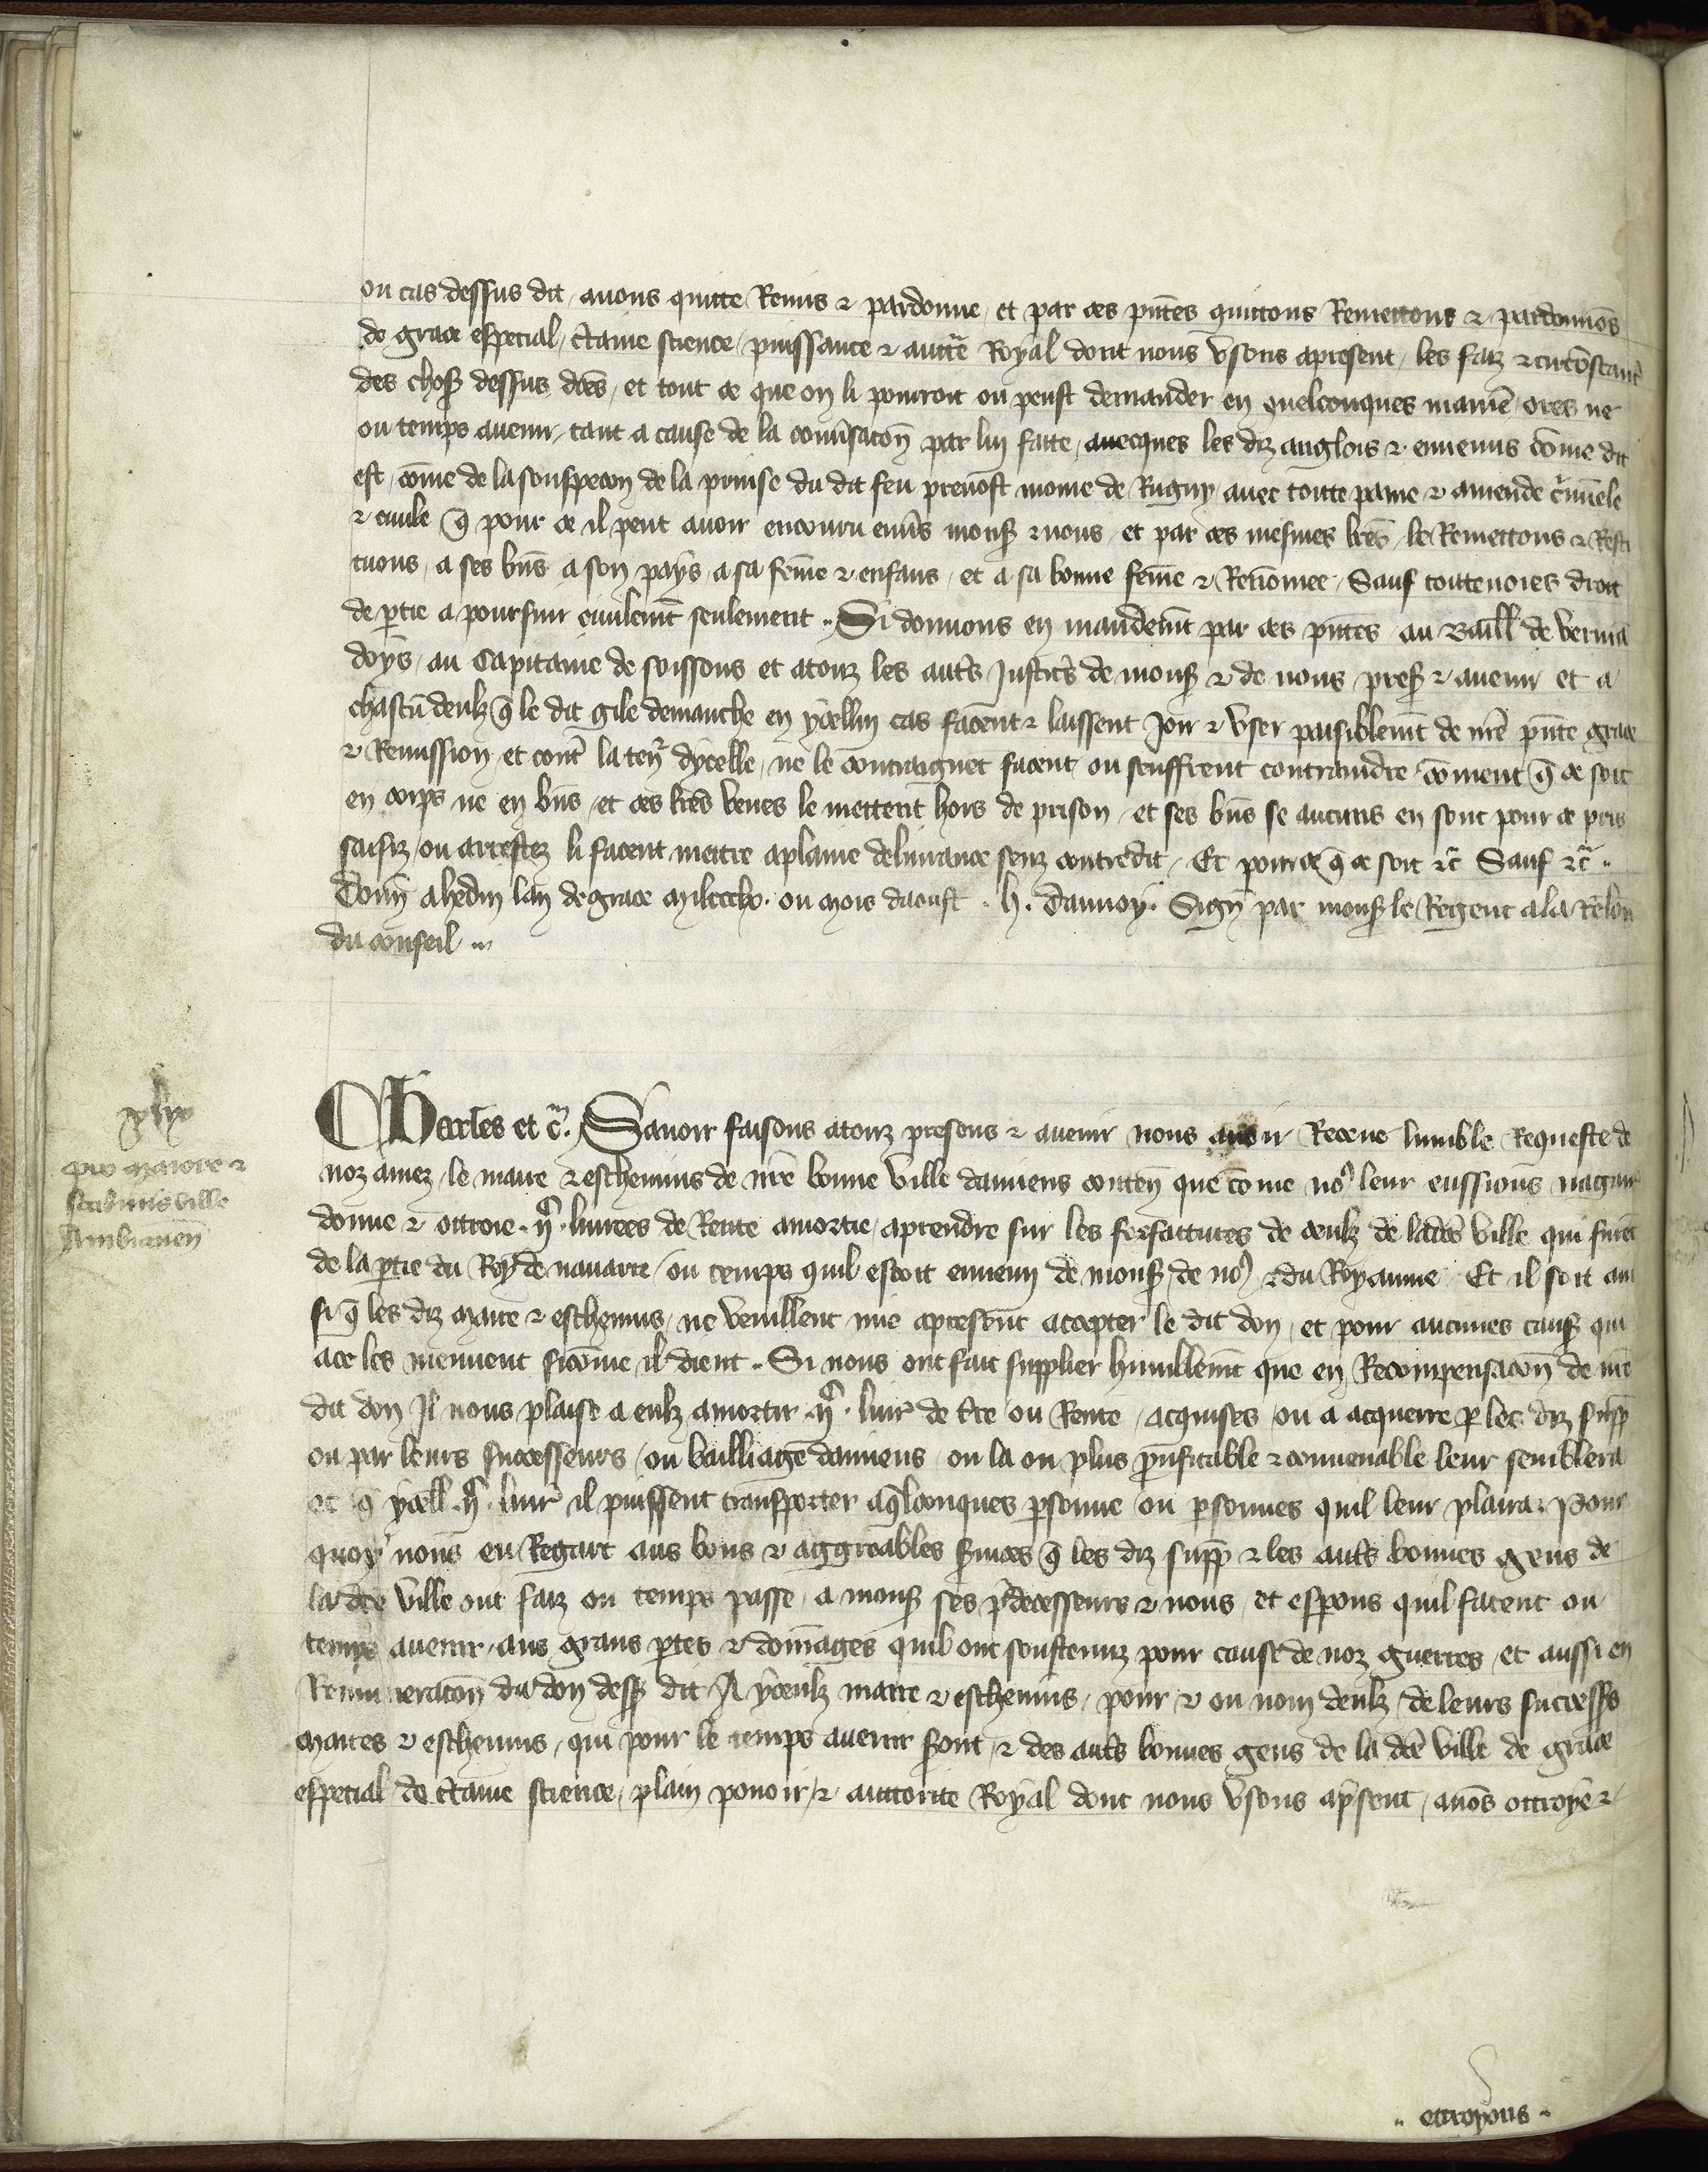 ou cas dessus dit, avons quitte Remis & pardonne, et par ces pñtes quittons Remettons & pardonnõs
de grace especial, c̃taine science, puissance & auct̃e Royal dont nous Usons apresent, les faiz & circõstanc̃
des choses dessus dc̃es, et tout ce que on li pourroit ou peust demander en quelconques manie᷑ ores ne
ou temps avenir, tant a cause de la conũsacõn par lui faite, avecques les diz anglois & ennemis cõme dit
est, cõme de la souspecon de la prinse du dit feu prevost moine de Rugny, avec toute paine & amende c̃minele
& civile q̃ pour ce il peut avoir encouru envs̃ monss̃ & nous, et par ces mesmes lr̃es, le Remettons & Resti
tuons, a ses bñs a son pays, a sa fẽme & enfans, et a sa bonne feme & Renomee, Sauf toutevoies droit
de p̃tie a poursuir civilemẽt seulement .. Si donnons en mandemẽt par ces pñtes au Baill̃ de verma
doys, au Capitaine de soissons et a touz les autr̃s Justic̃s de monss̃ & de nous pres̃ & avenir et a
chascũ deulz q̃ le dit gile demanche en ycelluy cas facent & laissent Joir & User paisiblemẽt de nr̃e pñte grace
& Remission, et contr̃ la ten᷑ dycelle, ne le contraignet facent ou seuffrent contraindre coment q̃ ce soit
en corps ne en bñs, et ces lr̃es veues le mettent hors de prison, et ses bñs se aucuns en sont pour ce pris
saisiz ou arrestez li facent mettre a plaine delivrance senz contredit, Et pour ce q̃ ce soit &c̃ Sauf &c̃ ..
Donñ a hedin lan de grace mil ccclx. ou mois daoust . h. dannoy. Sign̄ par monss̃ le Regent a la Relõn
du conseil ...
xlix
pro maiore &
scabinis ville
Ambianeñ
Charles et c̃. Savoir faisons a touz presens & avenir nous avoir Receue lumble Requeste de
noz amez, le maire & eschevins de nr̃e bonne Ville damiens conteñ que cõme no9 leur eussions nagair̃
donne & ottroie livrees de Rente amortie, aprendre sur les forfaitures de ceulz de ladc̃e Ville qui furẽt
de la p̃tie du Roy de navarre ou temps quil estoit ennemi de monss̃ de no9 & du Royaume Et il soit ain
si q̃ les diz maire & eschevins, ne veuillent mie apresẽt accepter le dit don, et pour aucunes causes qui
a ce les meuvent sicõme il dient .. Si nous ont fait supplier humblemẽt que en Recompensacõn de nr̃e
dit don Il nous plaise a eulz amortir livr̃ de tr̃e ou Rente, acquises ou a acquerre p̃ les diz supp̃
ou par leurs successeurs, ou bailliage damiens ou la ou plus p̃ufitable & convenable leur semblera
et q̃ ycell̃ livr̃ il puissent transporter a q̃lconques p̃sonne ou p̃sonnes quil leur plaira. Pour
quoy nous eu Regart aus bons & aggreables s̃vices q̃ les diz supp̃ & les autr̃s bonnes gens de
la dc̃e Ville ont faiz ou temps passe, a monss̃ ses p̃decesseurs & nous, et esp̃ons quil facent ou
temps avenir, aus grans p̃tes & domages quil ont soustenuz pour cause de noz guerres, et aussi en
Remuneracõn du don dess̃ dit A yceulz maire & eschevins, pour & ou nom deulz, de leurs successs̃
maires & eschevins, qui pour le temps avenir s̃ont, & des autr̃s bonnes gens de la dc̃e Ville de grace
especial de c̃taine science, plain povoir, & auctorite Royal dont nous Usons ap̃sent, avõs ottroye &
.. ottroyons ..